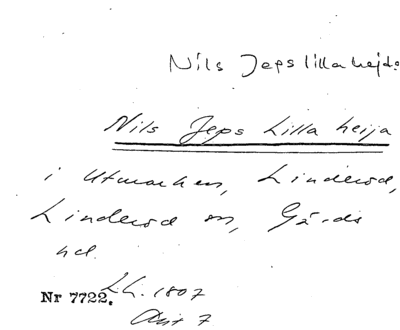 Nils Jeps lilla hejda
Nils Jeps Lilla heija
i Utmarken, Linderöd,
Linderöd sn, Gärds
hd.
Nr 7722. L.h. 1807
Akt 7